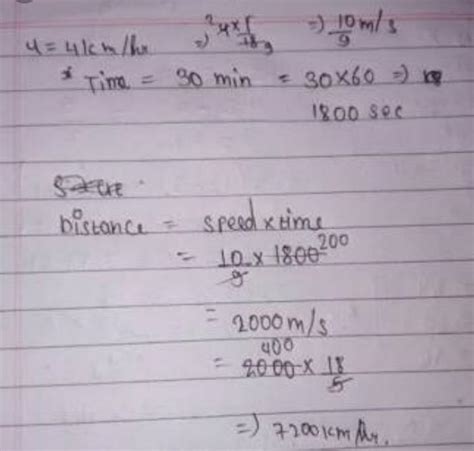 u = 4 km/hr => ²4 × 5/18 9 => 10/9 m/s
* Time = 30 min = 30×60 =>
1800 sec
Distance = speed × time
= 10/9 × 1800 200
= 2000 m/s
400
= 2000 × 18/5
=> 7200 km/hr.